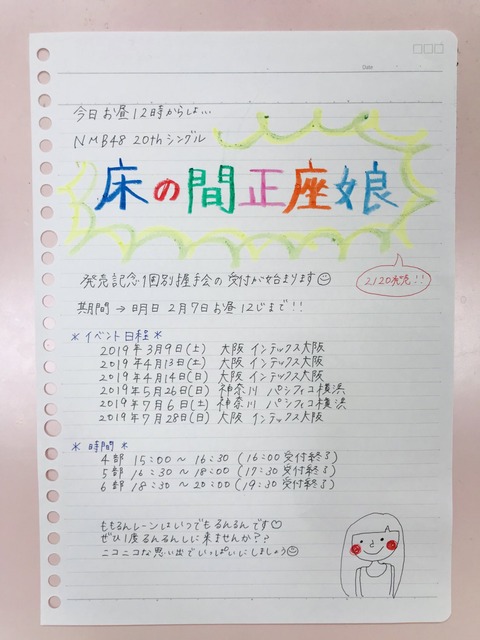 Date
今日お昼12時からしょ...
NMB48 20thシングル
床の間正座娘
2/20発売!!
発売記念個別握手会の受付が始まります☺
期間→明日2月7日お昼12じまで!!
*イベント日程*
2019年3月9日(土) 大阪 インテックス大阪
2019年4月13日(土) 大阪 インテックス大阪
2019年4月14日(日) 大阪 インテックス大阪
2019年5月26日(日) 神奈川 パシフィコ横浜
2019年7月6日(土) 神奈川 パシフィコ横浜
2019年7月28日(日) 大阪 インテックス大阪
*時間*
4部 15:00～16:30 (16:00受付終了)
5部 16:30～18:00 (17:30受付終了)
6部 18:30～20:00 (19:30受付終了)
ももるんレーンはいつでもるんるんです♡
ぜひ1度るんるんしに来ませんか??
ニコニコな思い出でいっぱいにしましょう☺